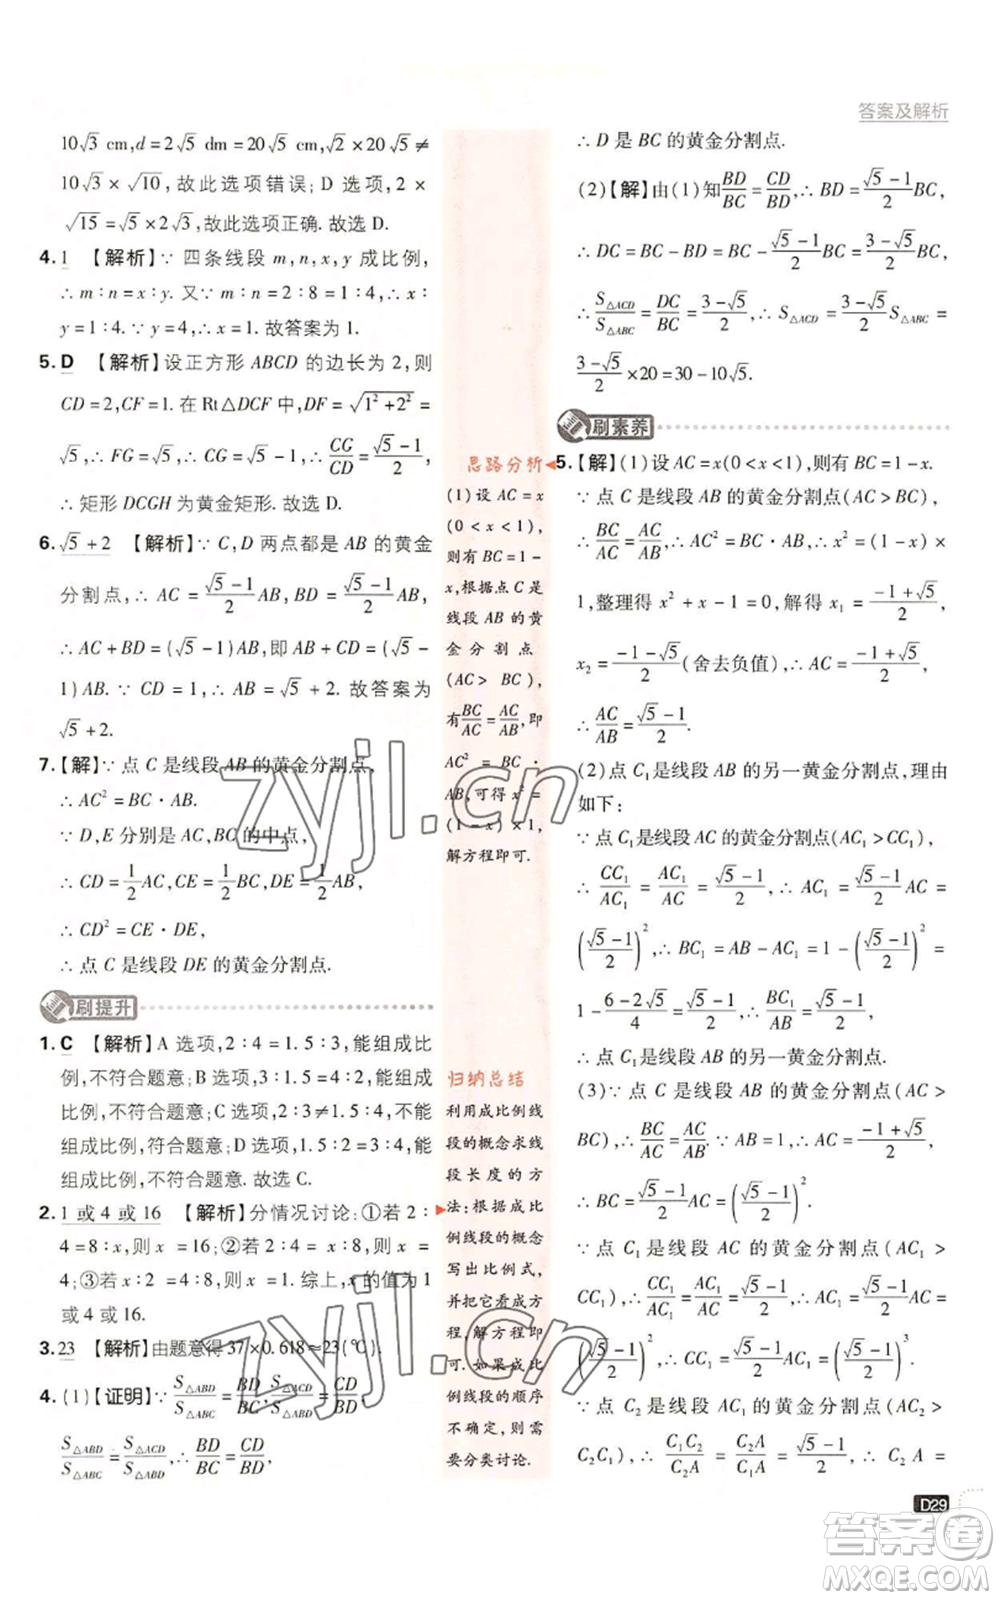 答案及解析
10√3 cm, d = 2√5 dm = 20√5 cm, 5 × 20√5 ≠
10√3 × √10, 故此选项错误; D 选项, √2 ×
√15 = √5 × 2√3, 故此选项正确. 故选 D.
4. 1 【解析】∵ 四条线段 m, n, x, y 成比例,
∴ m∶n = x∶y. 又∵ m∶n = 2∶8 = 1∶4, ∴ x∶
y = 1∶4. ∵ y = 4, ∴ x = 1. 故答案为 1.
5. D 【解析】设正方形 ABCD 的边长为 2, 则
CD = 2, CF = 1. 在 Rt△DCF 中, DF = √(1² + 2²) =
√5, ∴ FG = √5, ∴ CG = √5 - 1, ∴ CG/CD = (√5 - 1)/2,
∴ 矩形 DCGH 为黄金矩形. 故选 D.
6. √5 + 2 【解析】∵ C, D 两点都是 AB 的黄金
分割点, ∴ AC = (√5 - 1)/2 AB, BD = (√5 - 1)/2 AB,
∴ AC + BD = (√5 - 1)AB, 即 AB + CD = (√5 -
1)AB. ∵ CD = 1, ∴ AB = √5 + 2. 故答案为
√5 + 2.
7. 【解】∵ 点 C 是线段 AB 的黄金分割点,
∴ AC² = BC · AB.
∵ D, E 分别是 AC, BC 的中点,
∴ CD = 1/2 AC, CE = 1/2 BC, DE = 1/2 AB,
∴ CD² = CE · DE,
∴ 点 C 是线段 DE 的黄金分割点.
刷提升
1. C 【解析】A 选项, 2∶4 = 1.5∶3, 能组成比
例, 不符合题意; B 选项, 1∶3 = 2∶6, 能组成
比例, 不符合题意; C 选项, 2∶3 ≠ 1.5∶4, 不能
组成比例, 符合题意; D 选项, 1.5∶2 = 3∶4, 能
组成比例, 不符合题意. 故选 C.
2. 1 或 4 或 16 【解析】分情况讨论: ①若 2∶
4 = 8∶x, 则 x = 16; ②若 2∶4 = x∶8, 则 x =
4; ③若 x∶2 = 4∶8, 则 x = 1. 综上, x 的值为 1
或 4 或 16.
3. 23 【解析】由题意得 37 × 0.618 ≈ 23(℃).
4. (1)【证明】∵ S△ABD/S△ABC = BD/BC, S△ACD/S△ABD = CD/BD,
S△ABD/S△ABC = S△ACD/S△ABD, ∴ BD/BC = CD/BD,
思路分析
(1) 设 AC = x
(0 < x < 1),
则有 BC = 1 -
x, 根据点 C 是
线段 AB 的黄
金分割点
(AC > BC),
有 BC/AC = AC/AB, 即
AC² = BC ·
AB, 可得 x² =
(1 - x) × 1,
解方程即可.
归纳总结
利用成比例线
段的概念求线
段长度的方
法: 根据成比
例线段的概念
写出比例式,
并把它看成方
程, 解方程即
可. 如果成比
例线段的顺序
不确定, 则需
要分类讨论.
∴ D 是 BC 的黄金分割点.
(2)【解】由(1)知 BD/BC = CD/BD, ∴ BD = (√5 - 1)/2 BC,
∴ DC = BC - BD = BC - (√5 - 1)/2 BC = (3 - √5)/2 BC,
∴ S△ACD/S△ABC = DC/BC = (3 - √5)/2, ∴ S△ACD = (3 - √5)/2 S△ABC =
(3 - √5)/2 × 20 = 30 - 10√5.
刷素养
5. 【解】(1) 设 AC = x(0 < x < 1), 则有 BC = 1 - x.
∵ 点 C 是线段 AB 的黄金分割点(AC > BC),
∴ BC/AC = AC/AB, ∴ AC² = BC · AB, ∴ x² = (1 - x) ×
1, 整理得 x² + x - 1 = 0, 解得 x₁ = (-1 + √5)/2,
x₂ = (-1 - √5)/2 (舍去负值), ∴ AC = (-1 + √5)/2,
∴ AC/AB = (√5 - 1)/2.
(2) 点 C₁ 是线段 AB 的另一黄金分割点, 理由
如下:
∵ 点 C₁ 是线段 AC 的黄金分割点(AC₁ > CC₁),
∴ CC₁/AC₁ = AC₁/AC = (√5 - 1)/2, ∴ AC₁ = (√5 - 1)/2 AC =
((√5 - 1)/2)², ∴ BC₁ = AB - AC₁ = 1 - ((√5 - 1)/2)² =
1 - (6 - 2√5)/4 = (√5 - 1)/2, ∴ BC₁/AB = (√5 - 1)/2,
∴ 点 C₁ 是线段 AB 的另一黄金分割点.
(3) ∵ 点 C 是线段 AB 的黄金分割点(AC >
BC), ∴ BC/AC = AC/AB, ∴ AC = (-1 + √5)/2,
∴ BC = (√5 - 1)/2 AC = ((√5 - 1)/2)².
∵ 点 C₁ 是线段 AC 的黄金分割点(AC₁ >
CC₁), ∴ CC₁/AC₁ = AC₁/AC = (√5 - 1)/2, ∴ AC₁ =
((√5 - 1)/2)², ∴ CC₁ = (√5 - 1)/2 AC₁ = ((√5 - 1)/2)³.
∵ 点 C₂ 是线段 AC₁ 的黄金分割点(AC₂ >
C₁C₂), ∴ C₁C₂/C₂A = C₂A/C₁A = (√5 - 1)/2, ∴ AC₂ =
D29
zyjl.cn
zyjl.cn
答案卷
MXQE.COM